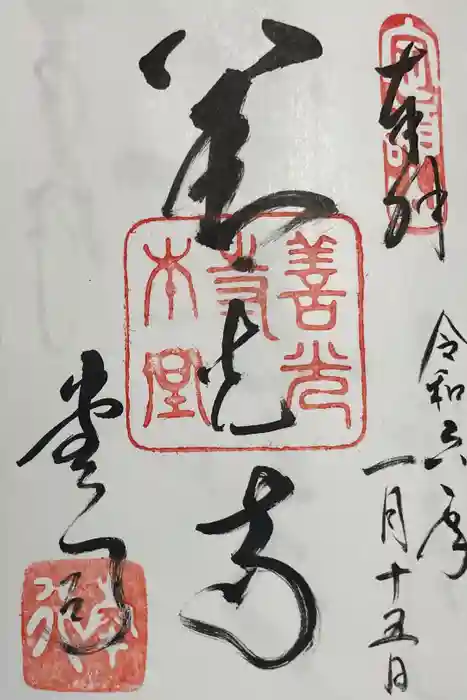 奉拝
令和六年
一月十五日
善光寺
善光寺本堂
堂司